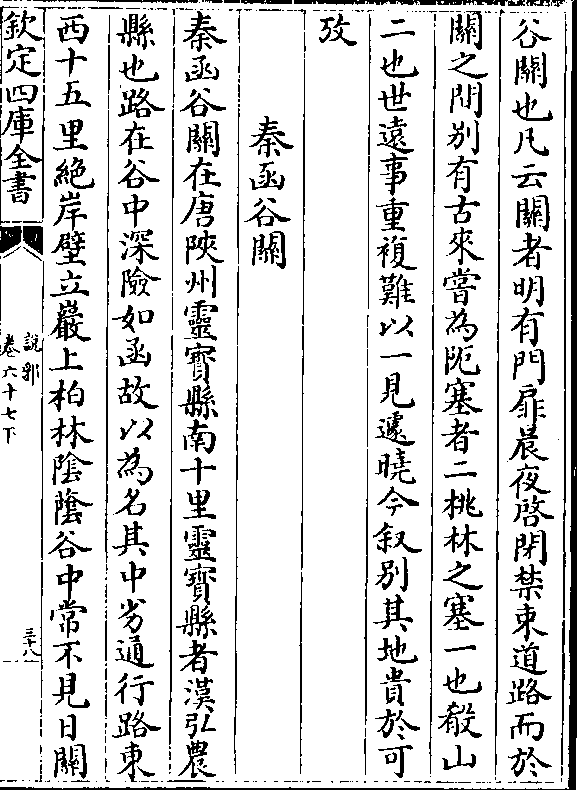 谷關也凡云關者明有門扉晨夜啓閉禁束道路而於
關之間别有古來嘗為阨塞者二桃林之塞一也殽山
二也世遠事重複難以一見遽曉今叙别其地貴於可
攷
秦函谷關
秦函谷關在唐陜州靈寶縣南十里靈寶縣者漢弘農
縣也路在谷中深險如函故以為名其中劣通行路東
西十五里絶岸壁立巖上柏林隂蔭谷中常不見日關
欽定四庫全書
說郛
卷六十七下
三十八